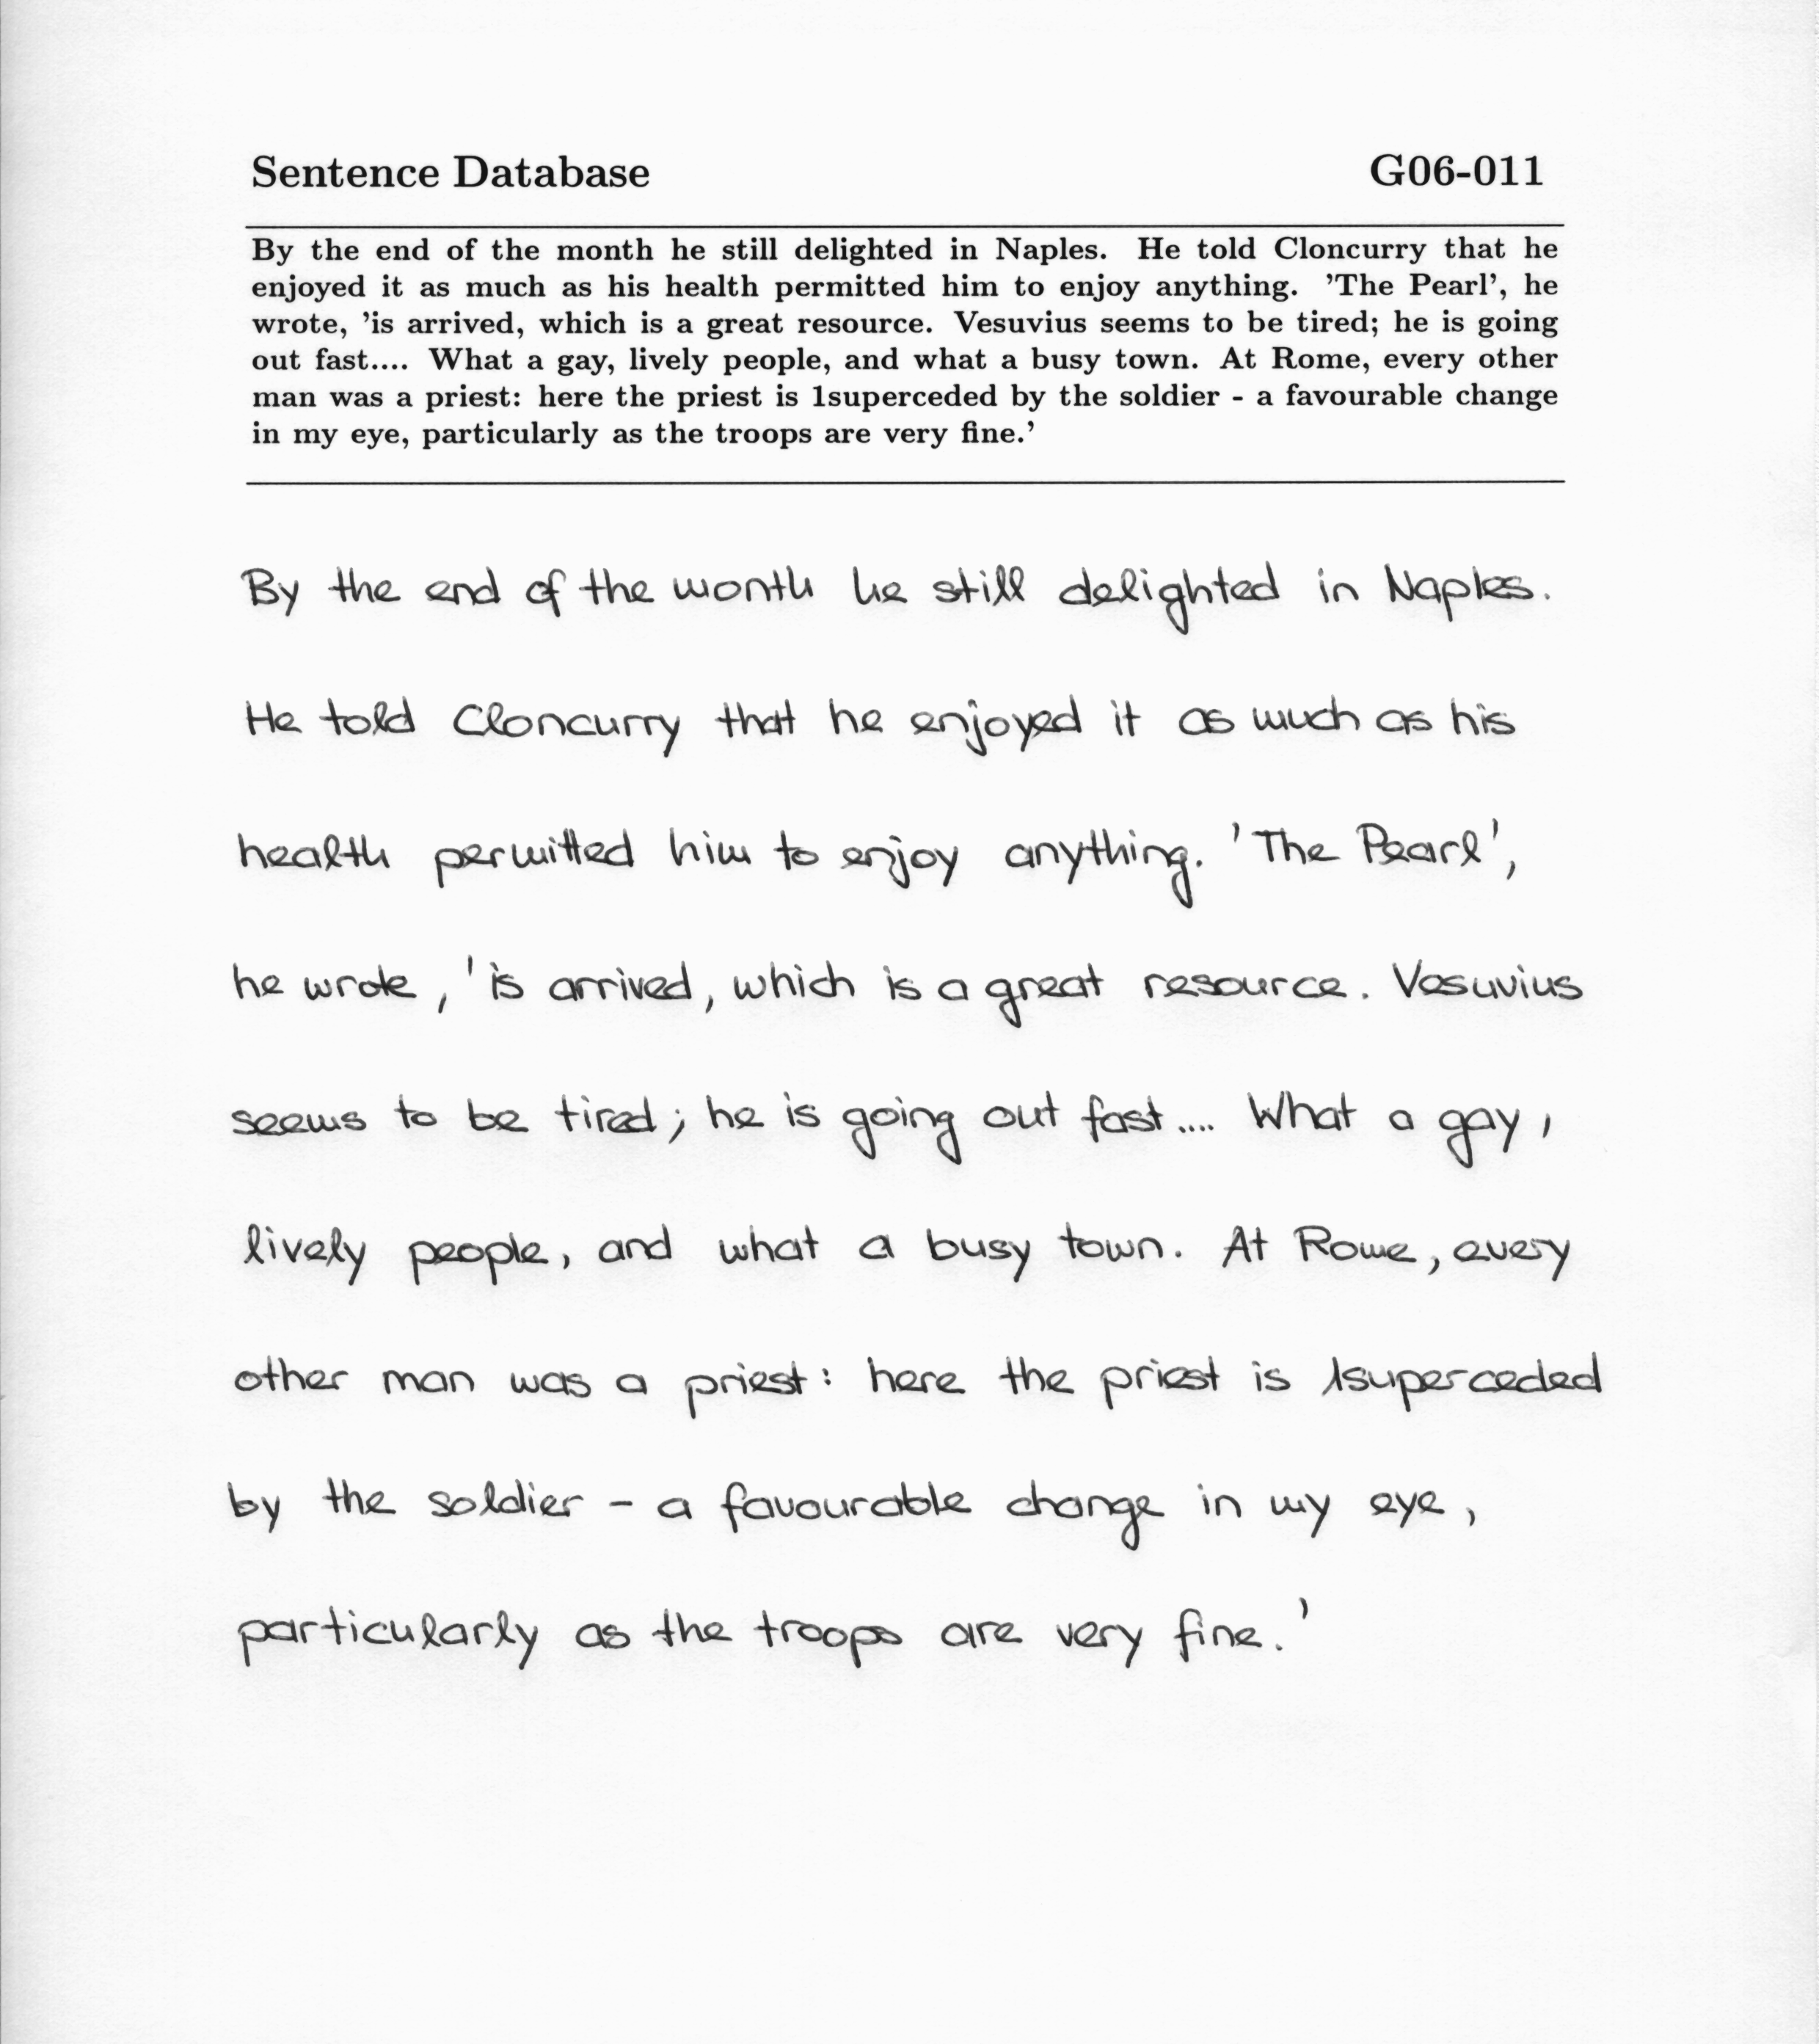 Sentence Database G06-011
By the end of the month he still delighted in Naples. He told Cloncurry that he
enjoyed it as much as his health permitted him to enjoy anything. 'The Pearl', he
wrote, 'is arrived, which is a great resource. Vesuvius seems to be tired; he is going
out fast.... What a gay, lively people, and what a busy town. At Rome, every other
man was a priest: here the priest is 1superceded by the soldier - a favourable change
in my eye, particularly as the troops are very fine.'
By the end of the month he still delighted in Naples.
He told Cloncurry that he enjoyed it as much as his
health permitted him to enjoy anything. 'The Pearl',
he wrote, 'is arrived, which is a great resource. Vesuvius
seems to be tired; he is going out fast.... What a gay,
lively people, and what a busy town. At Rome, every
other man was a priest: here the priest is 1superceded
by the soldier - a favourable change in my eye,
particularly as the troops are very fine.'